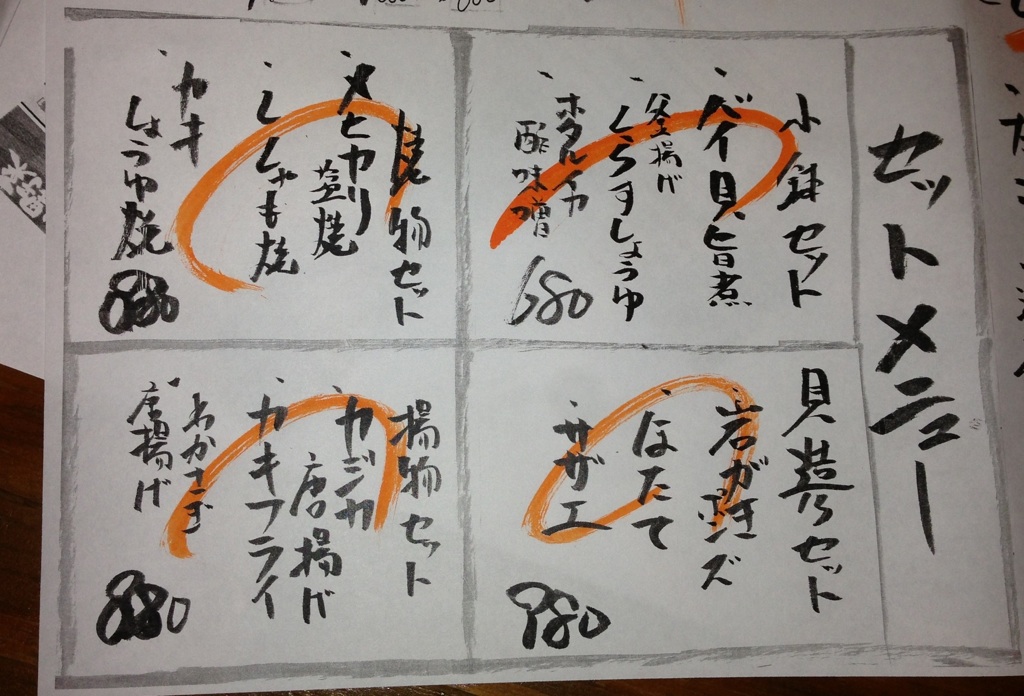 セットメニュー
小鉢セット
・バイ貝旨煮
・釜揚げ
しらすしょうゆ
・ホタルイカ
酢味噌
680
焼物セット
・メヒカリ
塩焼
・ししゃも焼
・カキ
しょうゆ焼
880
貝造りセット
・岩ガキ
ポンズ
・ほたて
・サザエ
980
揚物セット
・カジカ
唐揚げ
・カキフライ
・あかなぎ
唐揚げ
880